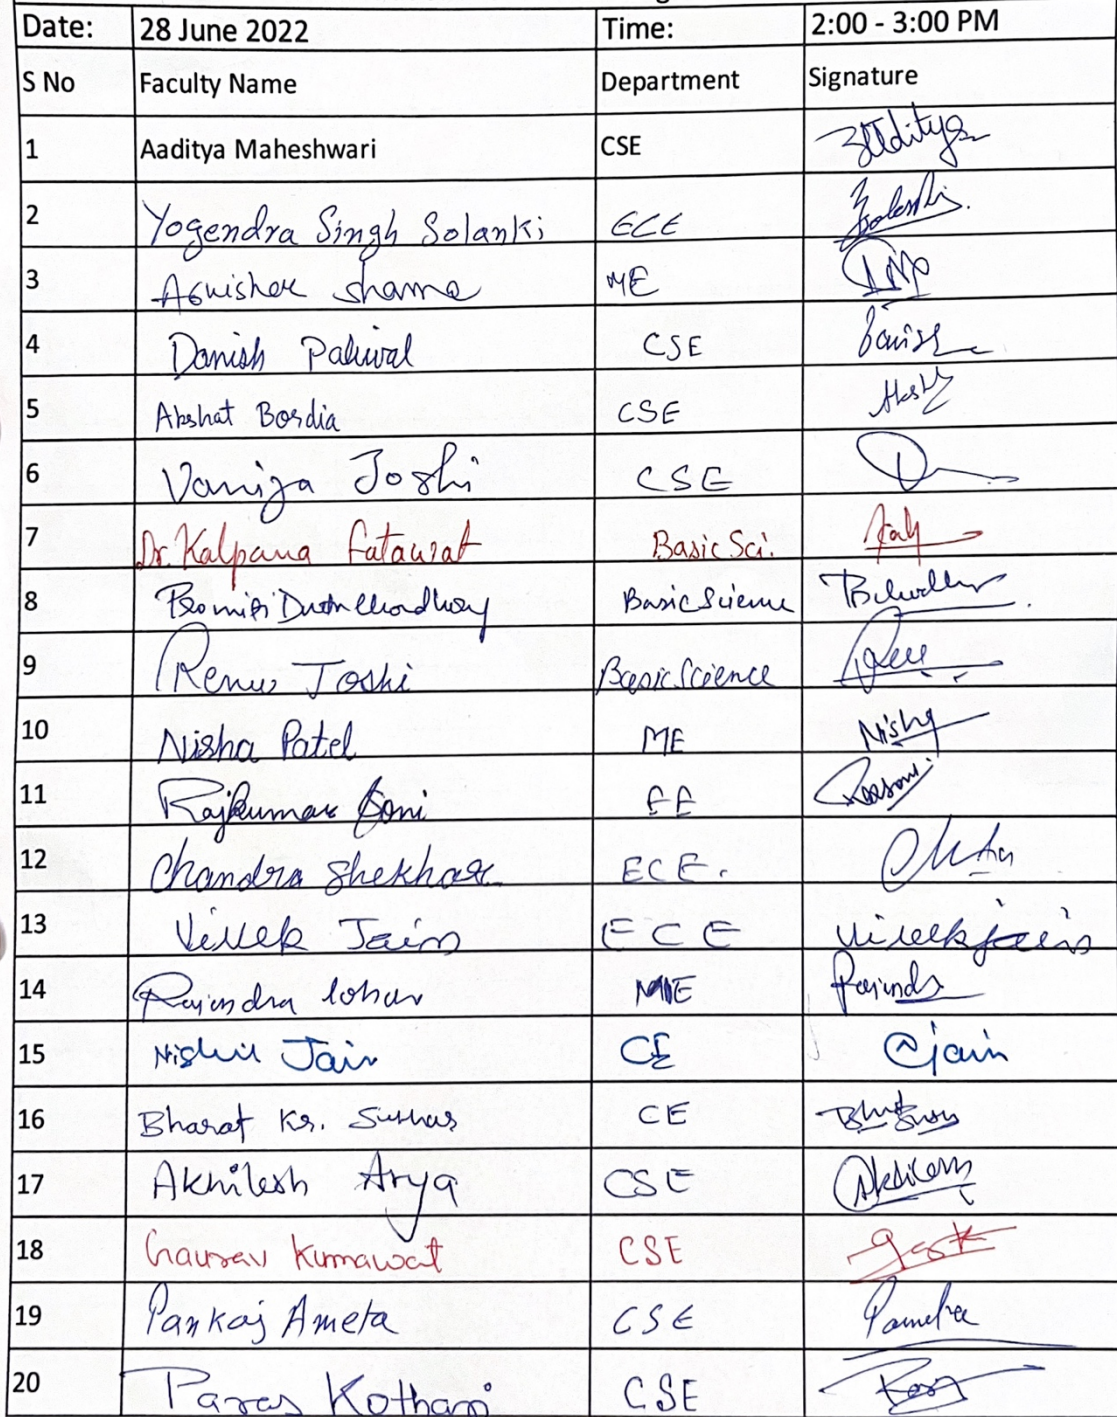 Date: 28 June 2022 Time: 2:00 - 3:00 PM
S No Faculty Name Department Signature
1 Aaditya Maheshwari CSE
2 Yogendra Singh Solanki ECE
3 ME
4 Danish Paliwal CSE
5 Akshat Bordia CSE
6 Vanija Joshi CSE
7 Dr. Kalpana Basic Sci.
8 Basic Science
9 Renu Joshi Basic Science
10 Nisha Patel ME Nisha
11 Rajkumar Soni EE
12 Chandra Shekhar ECE.
13 Vivek Jain ECE vivekjain
14 Rajendra lohar ME
15 Jain CE @jain
16 Bharat Kr. Suthar CE
17 Akhilesh Arya CSE
18 Gaurav Kumawat CSE
19 Pankaj Ameta CSE
20 Paras Kothari CSE